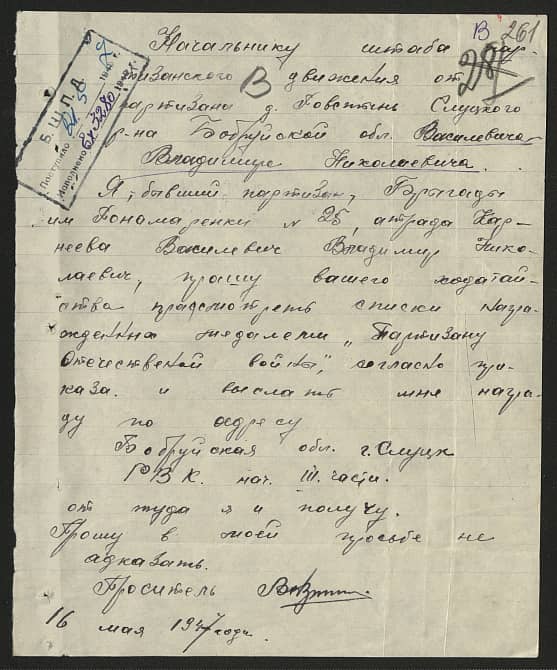 В 261
281
Начальнику штаба пар-
тизанского движения от
партизана д. Повстынь Слуцкого
р-на Бобруйской обл. Василевича
Владимира Николаевича.
Я, бывший партизан, Брыгады
им Пономаренки № 25, атрада Кар-
неева Василевич Владимир Нико-
лаевич, прашу вашего ходатай-
ства прасмотреть списки награ-
жденных медалем „Партизану
Отечественой войны", согласно при-
каза. и выслать мне награ-
ду по адресу
Бобруйская обл. г. Слуцк
РВК. нач. III. части.
от туда я и получу.
Прошу в моей просьбе не
адказать.
Проситель
16 мая 1947 года.
Б. Ш. П. Д.
Поступило
Исполнено
В